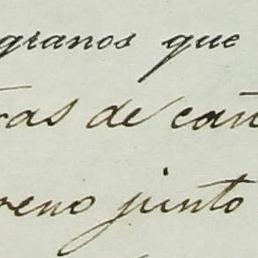 granos que
ras de can
reno junto